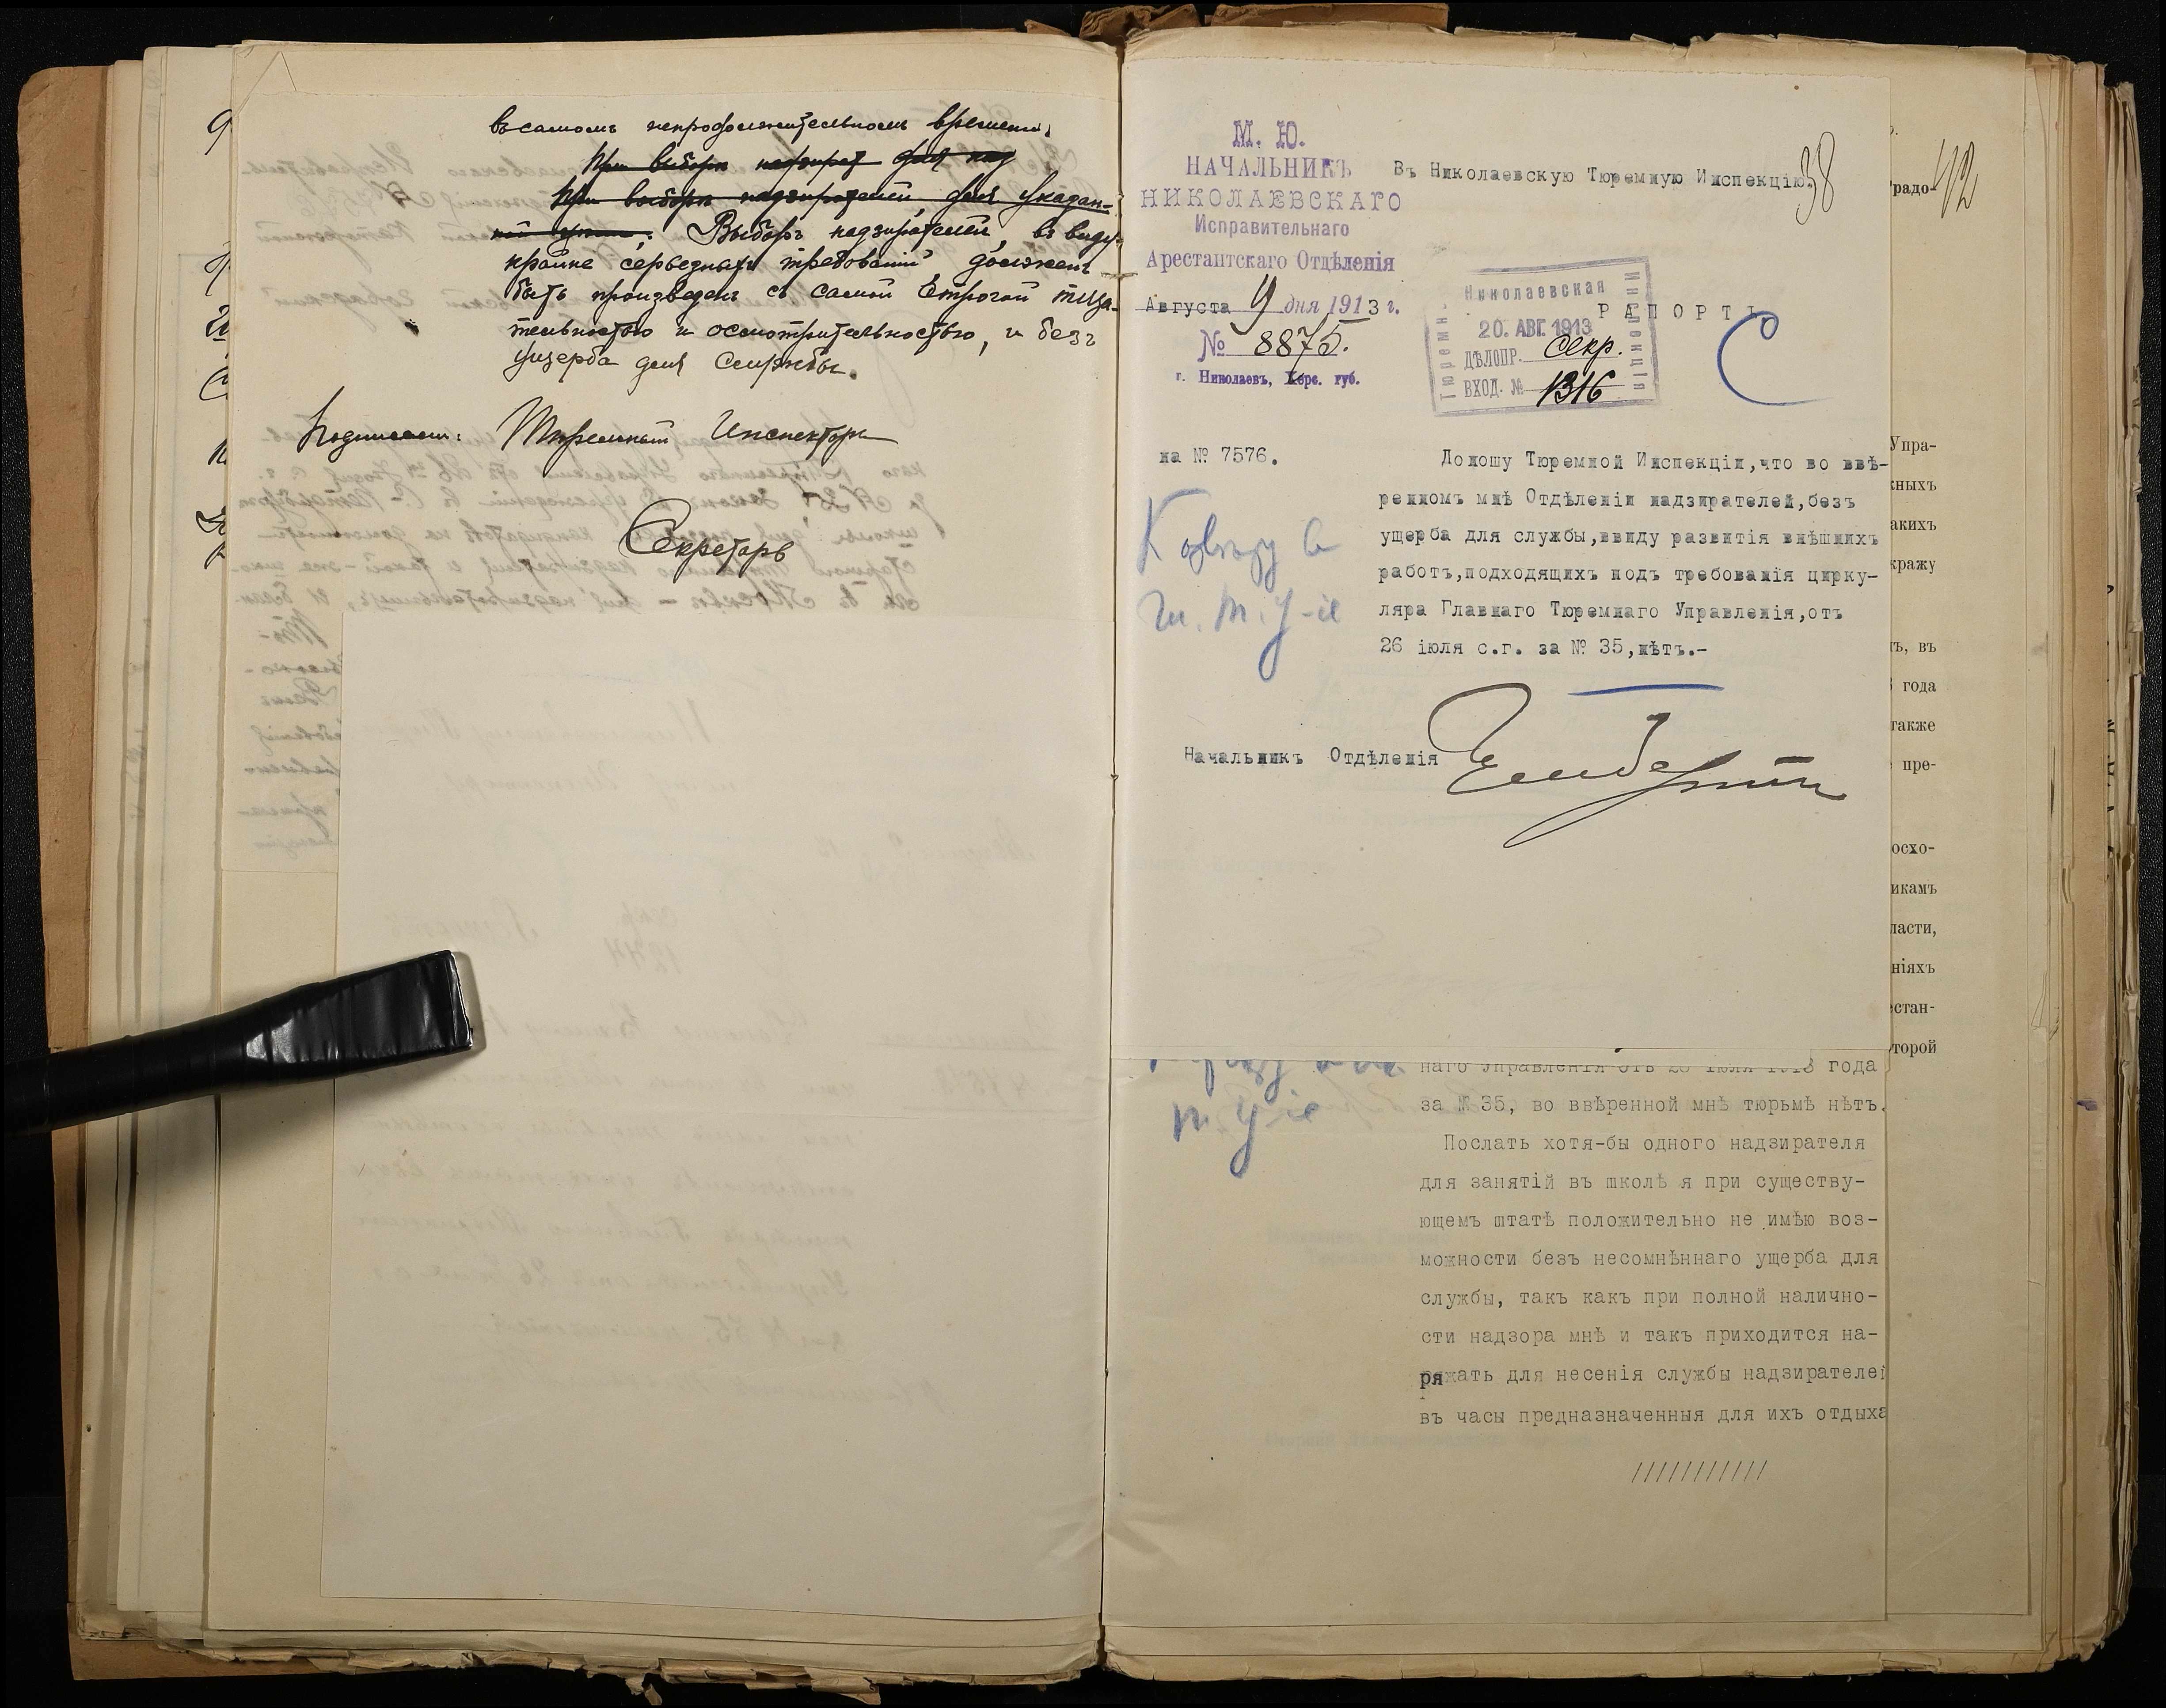 въ самомъ непродолжительномъ времени.
При выборѣ надзират для над
При выборѣ надзирателей для указан-
Выборъ надзирателей, въ виду
крайне серьезныхъ требованій, долженъ
быть произведенъ съ самой строгой тща-
тельностью и осмотрительностью, и безъ
ущерба для службы.
Подписали: Тюремный Инспекторъ
Секретарь
М. Ю.
НАЧАЛЬНИКЪ
НИКОЛАЕВСКАГО
Исправительнаго
Арестантскаго Отдѣленія
Августа 9 дня 1913 г.
№ 8875.
г. Николаевъ, Херс. губ.
Въ Николаевскую Тюремную Инспекцію.
38
Николаевская
Тюремн.
Инспекція
20. АВГ. 1913
ДѢЛОПР. Секр.
ВХОД. № 1316
РАПОРТЪ.
С
на № 7576.
Доношу Тюремной Инспекціи,что во ввѣ-
ренномъ мнѣ Отдѣленіи надзирателей,безъ
ущерба для службы,ввиду развитія внѣшнихъ
работъ,подходящихъ подъ требованія цирку-
ляра Главнаго Тюремнаго Управленія,отъ
26 іюля с.г. за № 35,нѣтъ.-
К докладу въ
Гл. Т. У-іе
Начальникъ Отдѣленія
наго Управленія отъ 26 іюля 1913 года
за № 35, во ввѣренной мнѣ тюрьмѣ нѣтъ.
Послать хотя-бы одного надзирателя
для занятій въ школѣ я при существу-
ющемъ штатѣ положительно не имѣю воз-
можности безъ несомнѣннаго ущерба для
службы, такъ какъ при полной налично-
сти надзора мнѣ и такъ приходится на-
ряжать для несенія службы надзирателей
въ часы предназначенныя для ихъ отдыха
///////////
Т У-іе
42
градо-
Упра-
жныхъ
акихъ
кражу
ъ, въ
года
также
пре-
осхо-
икамъ
ласти,
ніяхъ
естан-
торой